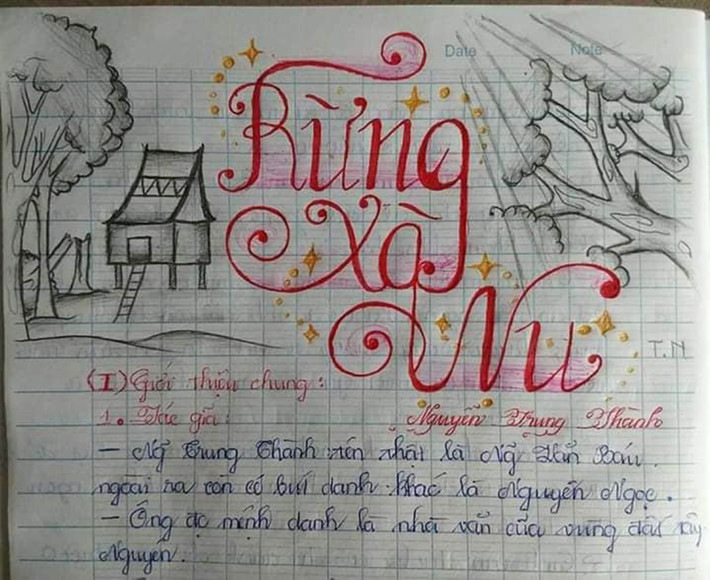 Date Note
Rừng
Xà
Nu
T.N
(I) Giới thiệu chung:
1. Tác giả: Nguyễn Trung Thành
– Ng~ Trung Thành tên thật là Ng~ Văn Báu.
ngoài ra còn có bút danh khác là Nguyên Ngọc.
– Ông đc mệnh danh là nhà văn của vùng đất Tây
Nguyên.